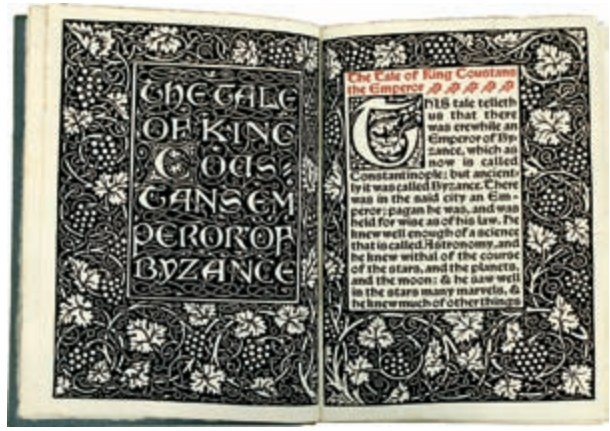 THE TALE
OF KING
COUS-
TANS EM
PEROR OF
BYZANCE
The Tale of King Coustans
the Emperor
THIS tale telleth
us that there
was erewhile an
Emperor of By-
zance, which as
now is called
Constantinople; but ancient-
ly it was called Byzance. There
was in the said city an Em-
peror; pagan he was, and was
held for wise as of his law. he
knew well enough of a science
that is called Astronomy, and
he knew withal of the course
of the stars, and the planets,
and the moon: & he saw well
in the stars many marvels, &
he knew much of other things